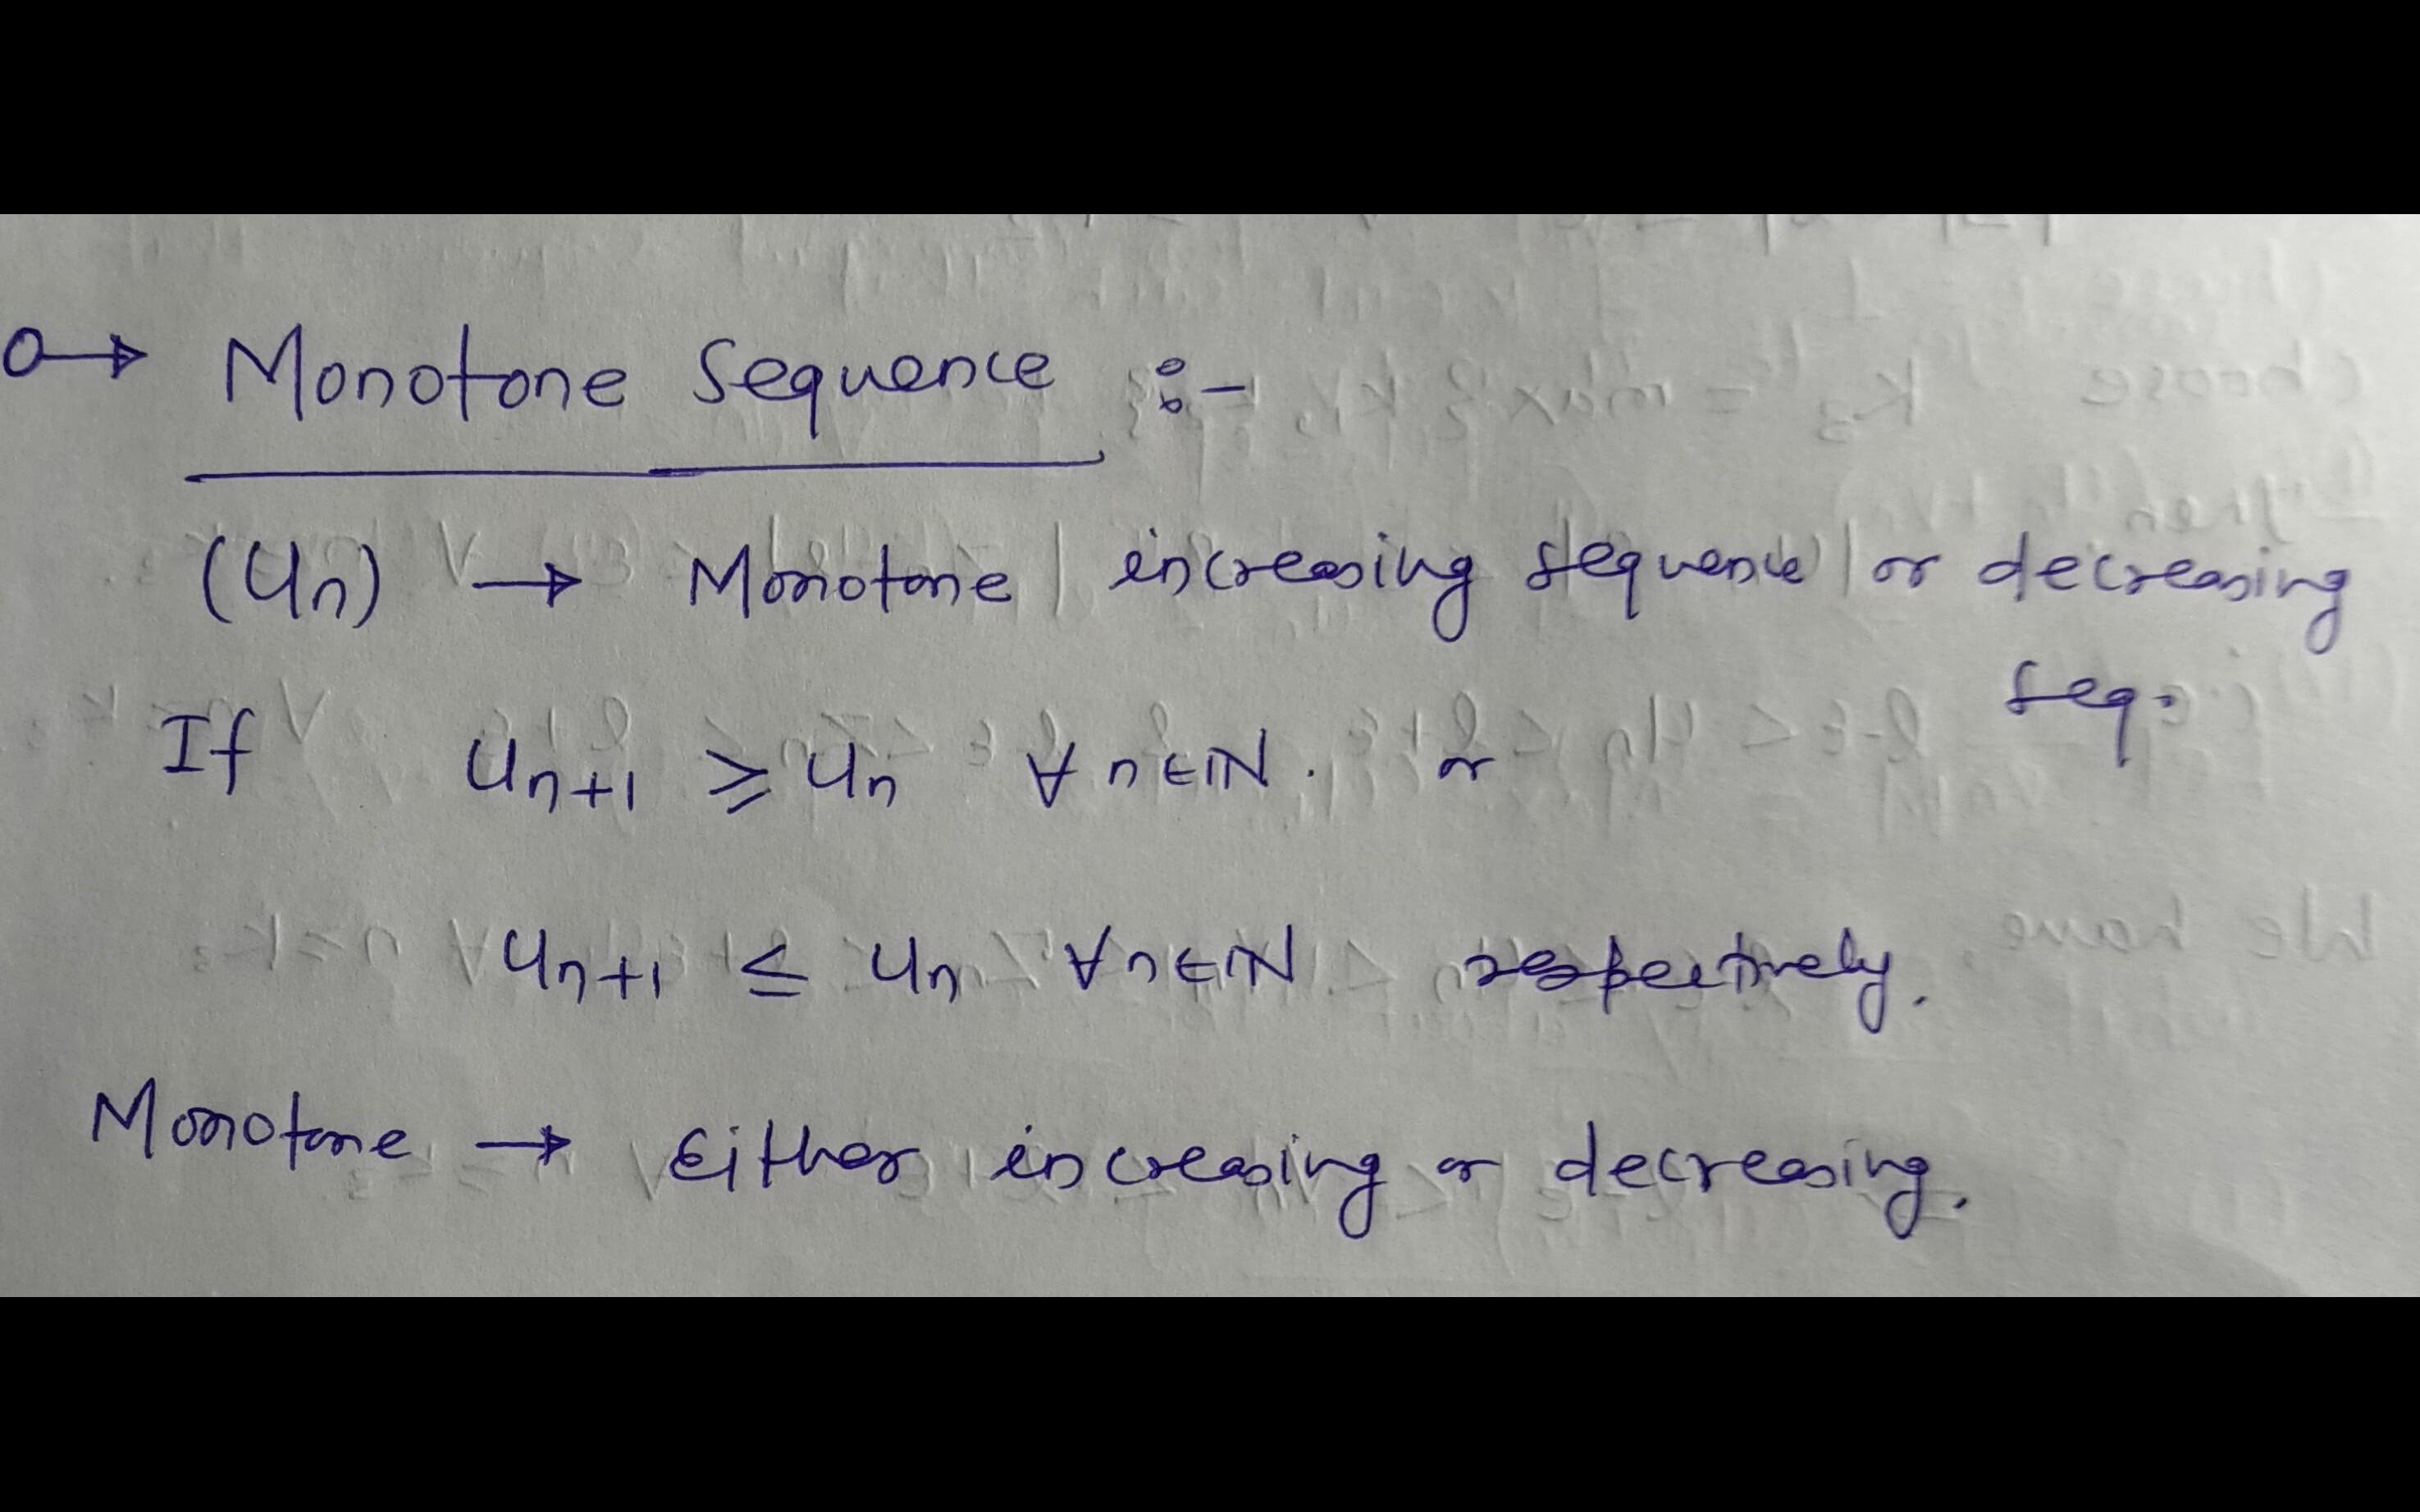 o→ Monotone Sequence :-
(Un) → Monotone | increasing sequence | or decreasing
seq.
If Un+1 ≥ Un ∀ n∈ℕ. or
Un+1 ≤ Un ∀n∈ℕ respectively.
Monotone → Either increasing or decreasing.